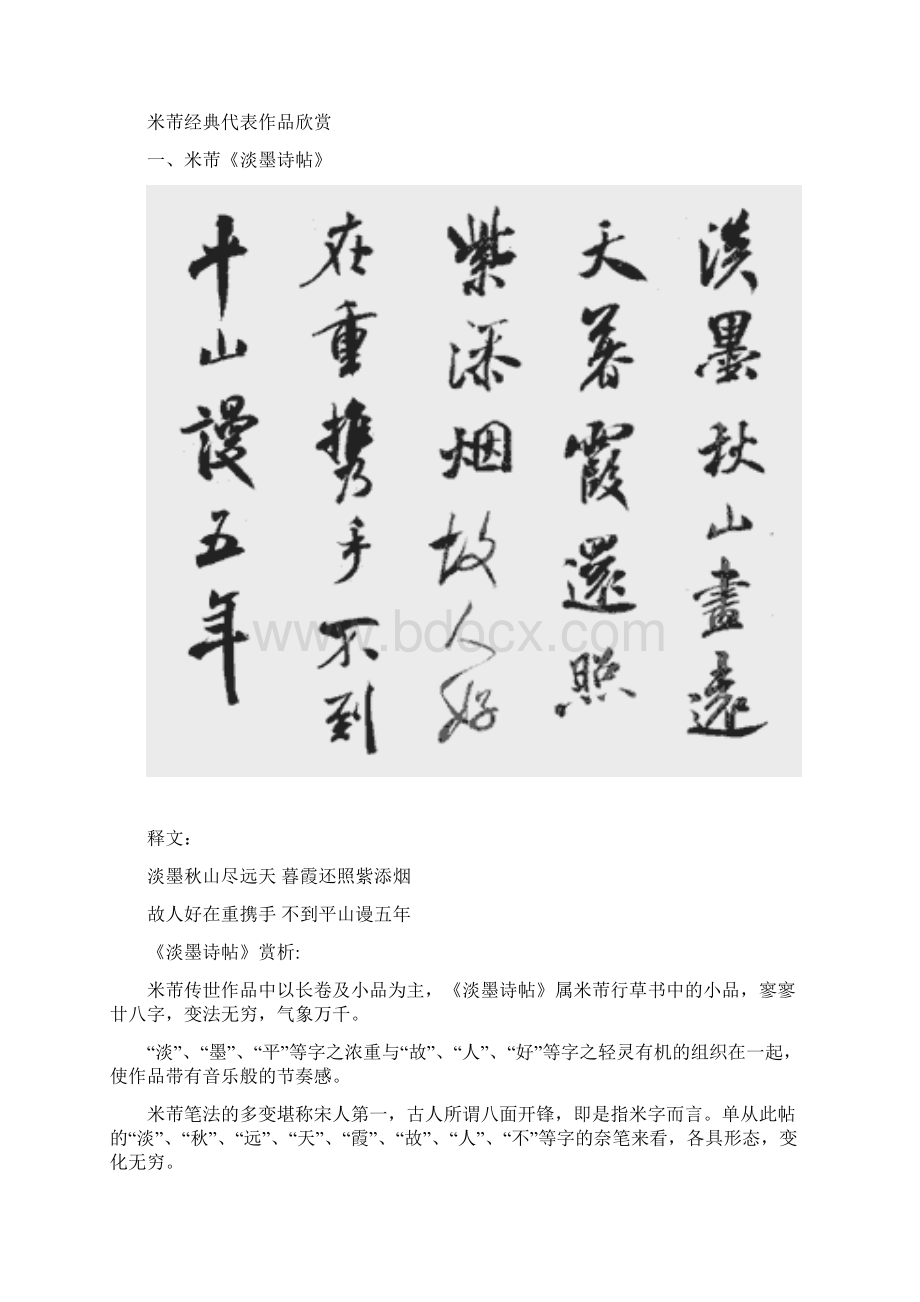 米芾经典代表作品欣赏
一、米芾《淡墨诗帖》
淡墨秋山畫遠
天暮霞還照
紫添烟故人好
在重携手不到
平山謾五年
www.bdocx.com
释文：
淡墨秋山尽远天 暮霞还照紫添烟
故人好在重携手 不到平山谩五年
《淡墨诗帖》赏析:
米芾传世作品中以长卷及小品为主，《淡墨诗帖》属米芾行草书中的小品，寥寥
廿八字，变法无穷，气象万千。
“淡”、“墨”、“平”等字之浓重与“故”、“人”、“好”等字之轻灵有机的组织在一起，
使作品带有音乐般的节奏感。
米芾笔法的多变堪称宋人第一，古人所谓八面开锋，即是指米字而言。单从此帖
的“淡”、“秋”、“远”、“天”、“霞”、“故”、“人”、“不”等字的奈笔来看，各具形态，变
化无穷。